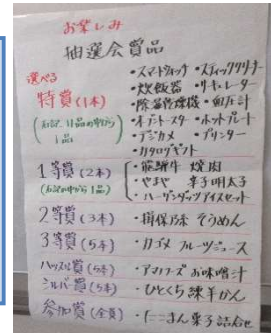 お楽しみ
抽選会賞品
選べる
特賞(1本)
(右記、11品の中から
1品)
・スマートウォッチ ・スティッククリーナー
・炊飯器 ・サーキュレーター
・除湿乾燥機 ・血圧計
・オーブントースター ・ホットプレート
・デジカメ ・プリンター
・カタログギフト
1等賞(2本)
(右記の中から1品)
・飛騨牛 焼肉
・やまや 辛子明太子
・ハーゲンダッツアイスセット
2等賞(3本) ・揖保乃糸 そうめん
3等賞(5本) ・カゴメ フルーツジュース
ハッスル賞(5本) ・アマノフーズお味噌汁
シルバー賞(5本) ・ひとくち煉羊かん
参加賞(全員)
お菓子詰合せ